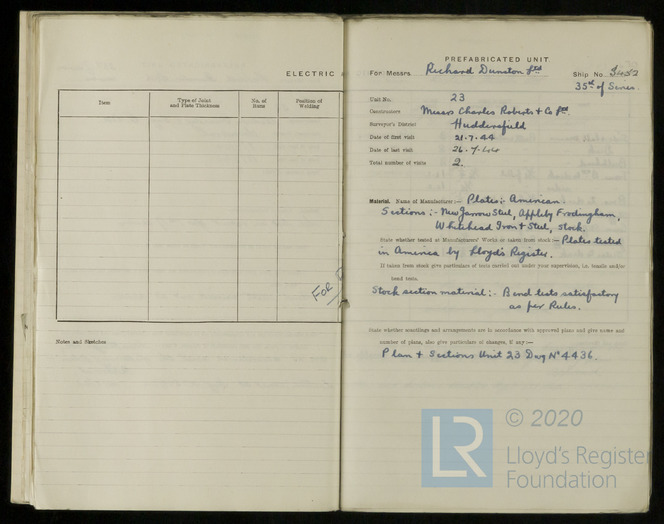 ELECTRIC
Item
Type of Joint
and Plate Thickness
No. of
Runs
Position of
Welding
FOR
Notes and Sketches
PREFABRICATED UNIT.
For Messrs Richard Dunston Ltd Ship No.
35th of Series.
Unit No. 23
Constructors Messrs Charles Roberts & Co Ltd.
Surveyor's District Huddersfield
Date of first visit 21.7.44
Date of last visit 26.7.44
Total number of visits 2.
Material. Name of Manufacturer:— Plates:- American
Sections:- New Jarrow Steel, Appleby Frodingham,
Whitehead Iron & Steel, Stock.
State whether tested at Manufacturers' Works or taken from stock:— Plates tested
in America by Lloyd's Register.
If taken from stock give particulars of tests carried out under your supervision, i.e. tensile and/or
bend tests.
Stock section material:- Bend tests satisfactory
as per Rules.
State whether scantlings and arrangements are in accordance with approved plans and give names and
number of plans, also give particulars of changes, if any:—
Plan & Sections Unit 23 Dwg No 4436.
LR
© 2020
Lloyd's Register
Foundation